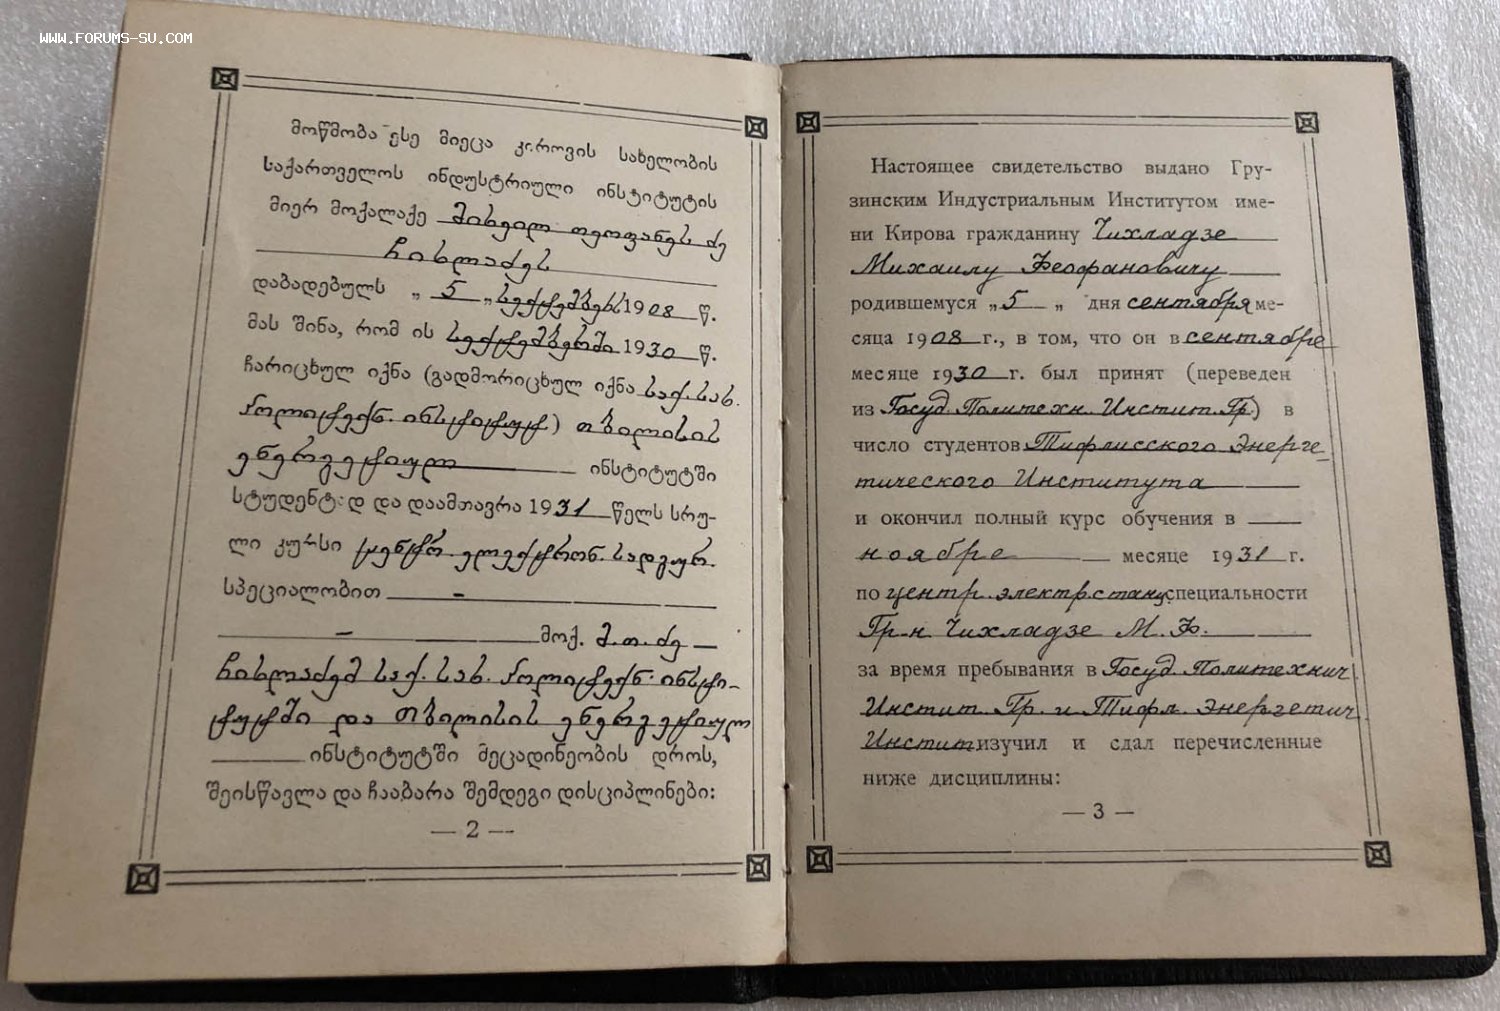 WWW.FORUMS-SU.COM
მოწმობა ესე მიეცა კიროვის სახელობის
საქართველოს ინდუსტრიული ინსტიტუტის
მიერ მოქალაქე მიხეილ თეოფანეს ძე
ჩიხლაძეს
დაბადებულს „ 5 „ სექტემბერს 1908 წ.
მას შინა, რომ ის სექტემბერში 1930 წ.
ჩარიცხულ იქნა (გადმორიცხულ იქნა საქ. სახ.
პოლიტექნ. ინსტიტუტ.) თბილისის
ენერგეტიულ ინსტიტუტში
სტუდენტად და დაამთავრა 1931 წელს სრუ-
ლი კურსი ცენტრ. ელექტრონ. სადგურ.
სპეციალობით -
- მოქ. მ. თ. ძე
ჩიხლაძემ საქ. სახ. პოლიტექნ. ინსტი-
ტუტში და თბილისის ენერგეტიულ
ინსტიტუტში მეცადინეობის დროს,
შეისწავლა და ჩააბარა შემდეგი დისციპლინები:
— 2 —
Настоящее свидетельство выдано Гру-
зинским Индустриальным Институтом име-
ни Кирова гражданину Чихладзе
Михаилу Феофановичу
родившемуся „ 5 „ дня сентября ме-
сяца 1908 г., в том, что он в сентябре
месяце 1930 г. был принят (переведен
из Госуд. Политехн. Инстит. Гр.) в
число студентов Тифлисского Энерге-
тического Института
и окончил полный курс обучения в
ноябре месяце 1931 г.
по центр. электр. станц. специальности
Гр-н Чихладзе М. Ф.
за время пребывания в Госуд. Политехнич.
Инстит. Гр. и Тифл. Энергетич.
Инстит. изучил и сдал перечисленные
ниже дисциплины:
— 3 —